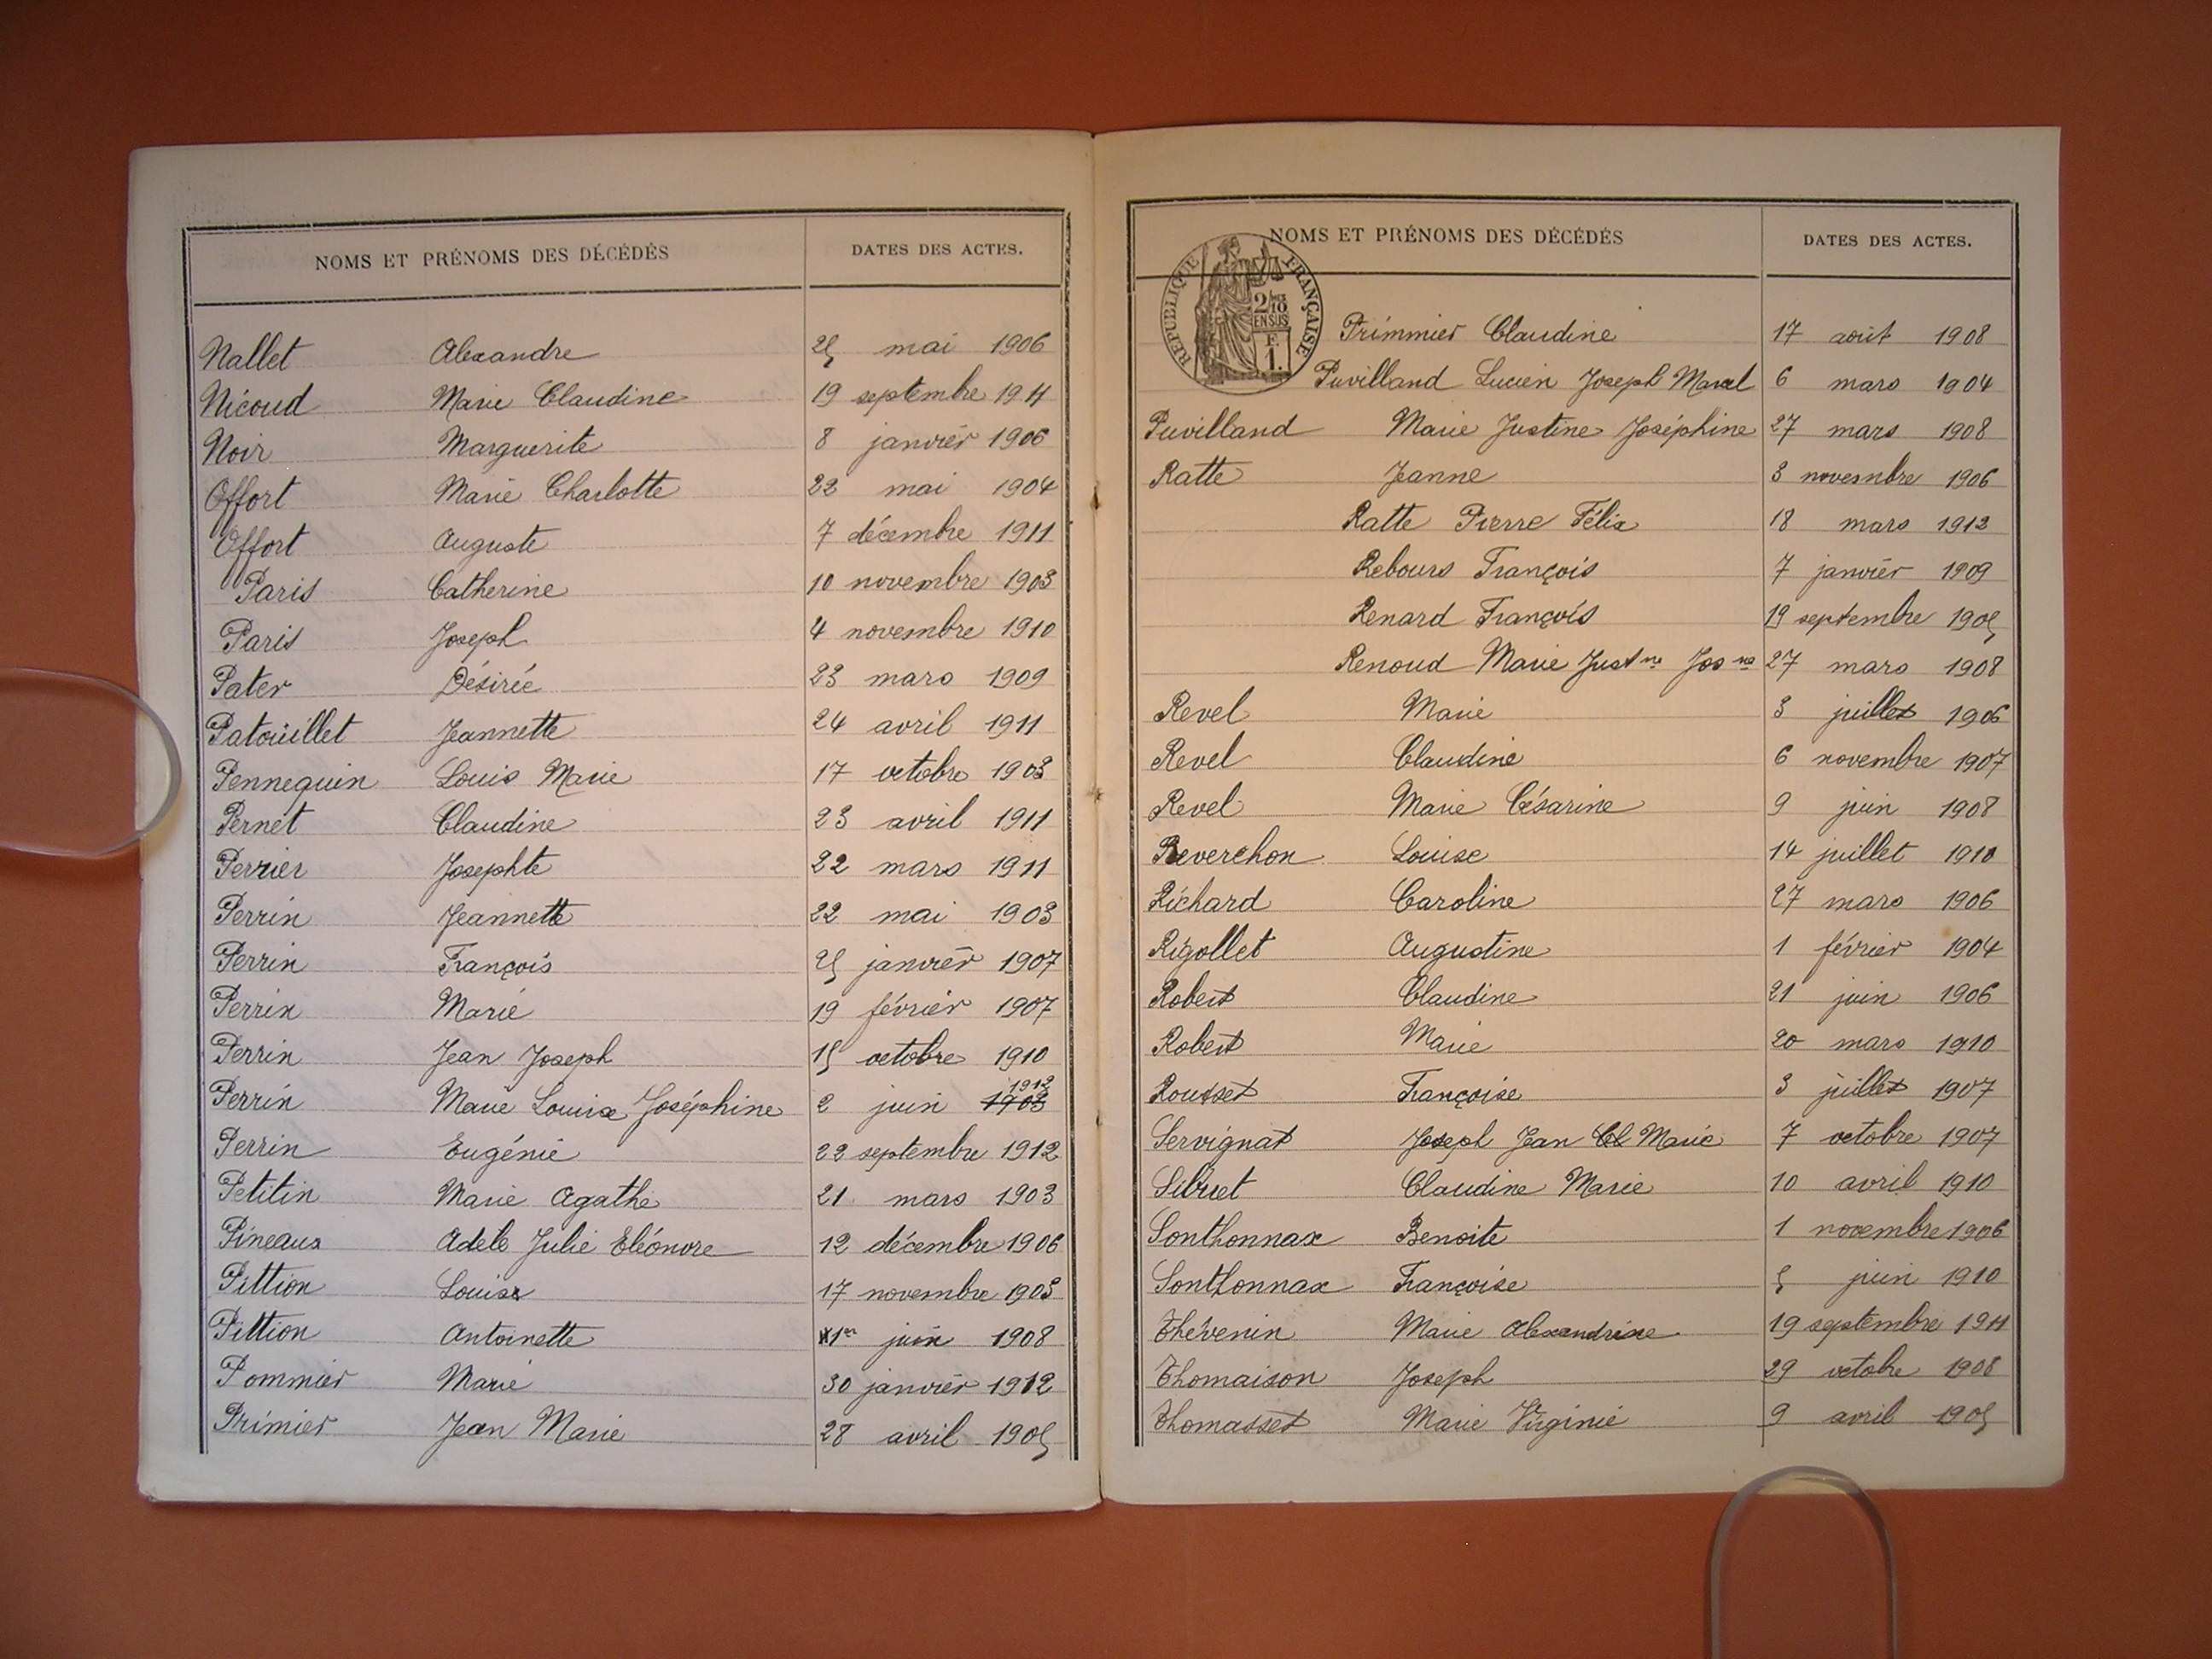 NOMS ET PRÉNOMS DES DÉCÉDÉS DATES DES ACTES.
Nallet Alexandre 25 mai 1906
Nicoud Marie Claudine 19 septembre 1911
Noir Marguerite 8 janvier 1906
Offort Marie Charlotte 22 mai 1904
Offort Auguste 7 décembre 1911
Paris Catherine 10 novembre 1903
Paris Joseph 4 novembre 1910
Pater Désirée 23 mars 1909
Patouillet Jeannette 24 avril 1911
Pennequin Louis Marie 17 octobre 1903
Pernet Claudine 23 avril 1911
Perrier Josephte 22 mars 1911
Perrin Jeannette 22 mai 1903
Perrin François 25 janvier 1907
Perrin Marie 19 février 1907
Perrin Jean Joseph 15 octobre 1910
1912
Perrin Marie Louise Joséphine 2 juin 1903
Perrin Eugénie 22 septembre 1912
Petitin Marie Agathe 21 mars 1903
Pineaux Adèle Julie Eléonore 12 décembre 1906
Pittion Louise 17 novembre 1903
Pittion Antoinette 1er juin 1908
Pommier Marie 30 janvier 1912
Primier Jean Marie 28 avril 1905
NOMS ET PRÉNOMS DES DÉCÉDÉS DATES DES ACTES.
RÉPUBLIQUE FRANÇAISE
2/10
EN SUS
F.
1.
Primmier Claudine 17 août 1908
Puvilland Lucien Joseph 6 mars 1904
Puvilland Marie Justine Joséphine 27 mars 1908
Ratte Jeanne 3 novembre 1906
Ratte Pierre Félix 18 mars 1912
Rebours François 7 janvier 1909
Renard François 19 septembre 1905
Renoud Marie Justne Josne 27 mars 1908
Revel Marie 3 juillet 1906
Revel Claudine 6 novembre 1907
Revel Marie Césarine 9 juin 1908
Reverchon Louise 14 juillet 1910
Richard Caroline 27 mars 1906
Rigollet Augustine 1 février 1904
Robert Claudine 21 juin 1906
Robert Marie 20 mars 1910
Rousset Françoise 3 juillet 1907
Servignat Joseph Jean Cl Marie 7 octobre 1907
Sibuet Claudine Marie 10 avril 1910
Sonthonnax Benoite 1 novembre 1906
Sonthonnax Françoise 5 juin 1910
Thévenin Marie Alexandrine 19 septembre 1911
Thomaison Joseph 29 octobre 1908
Thomasset Marie Virginie 9 avril 1905